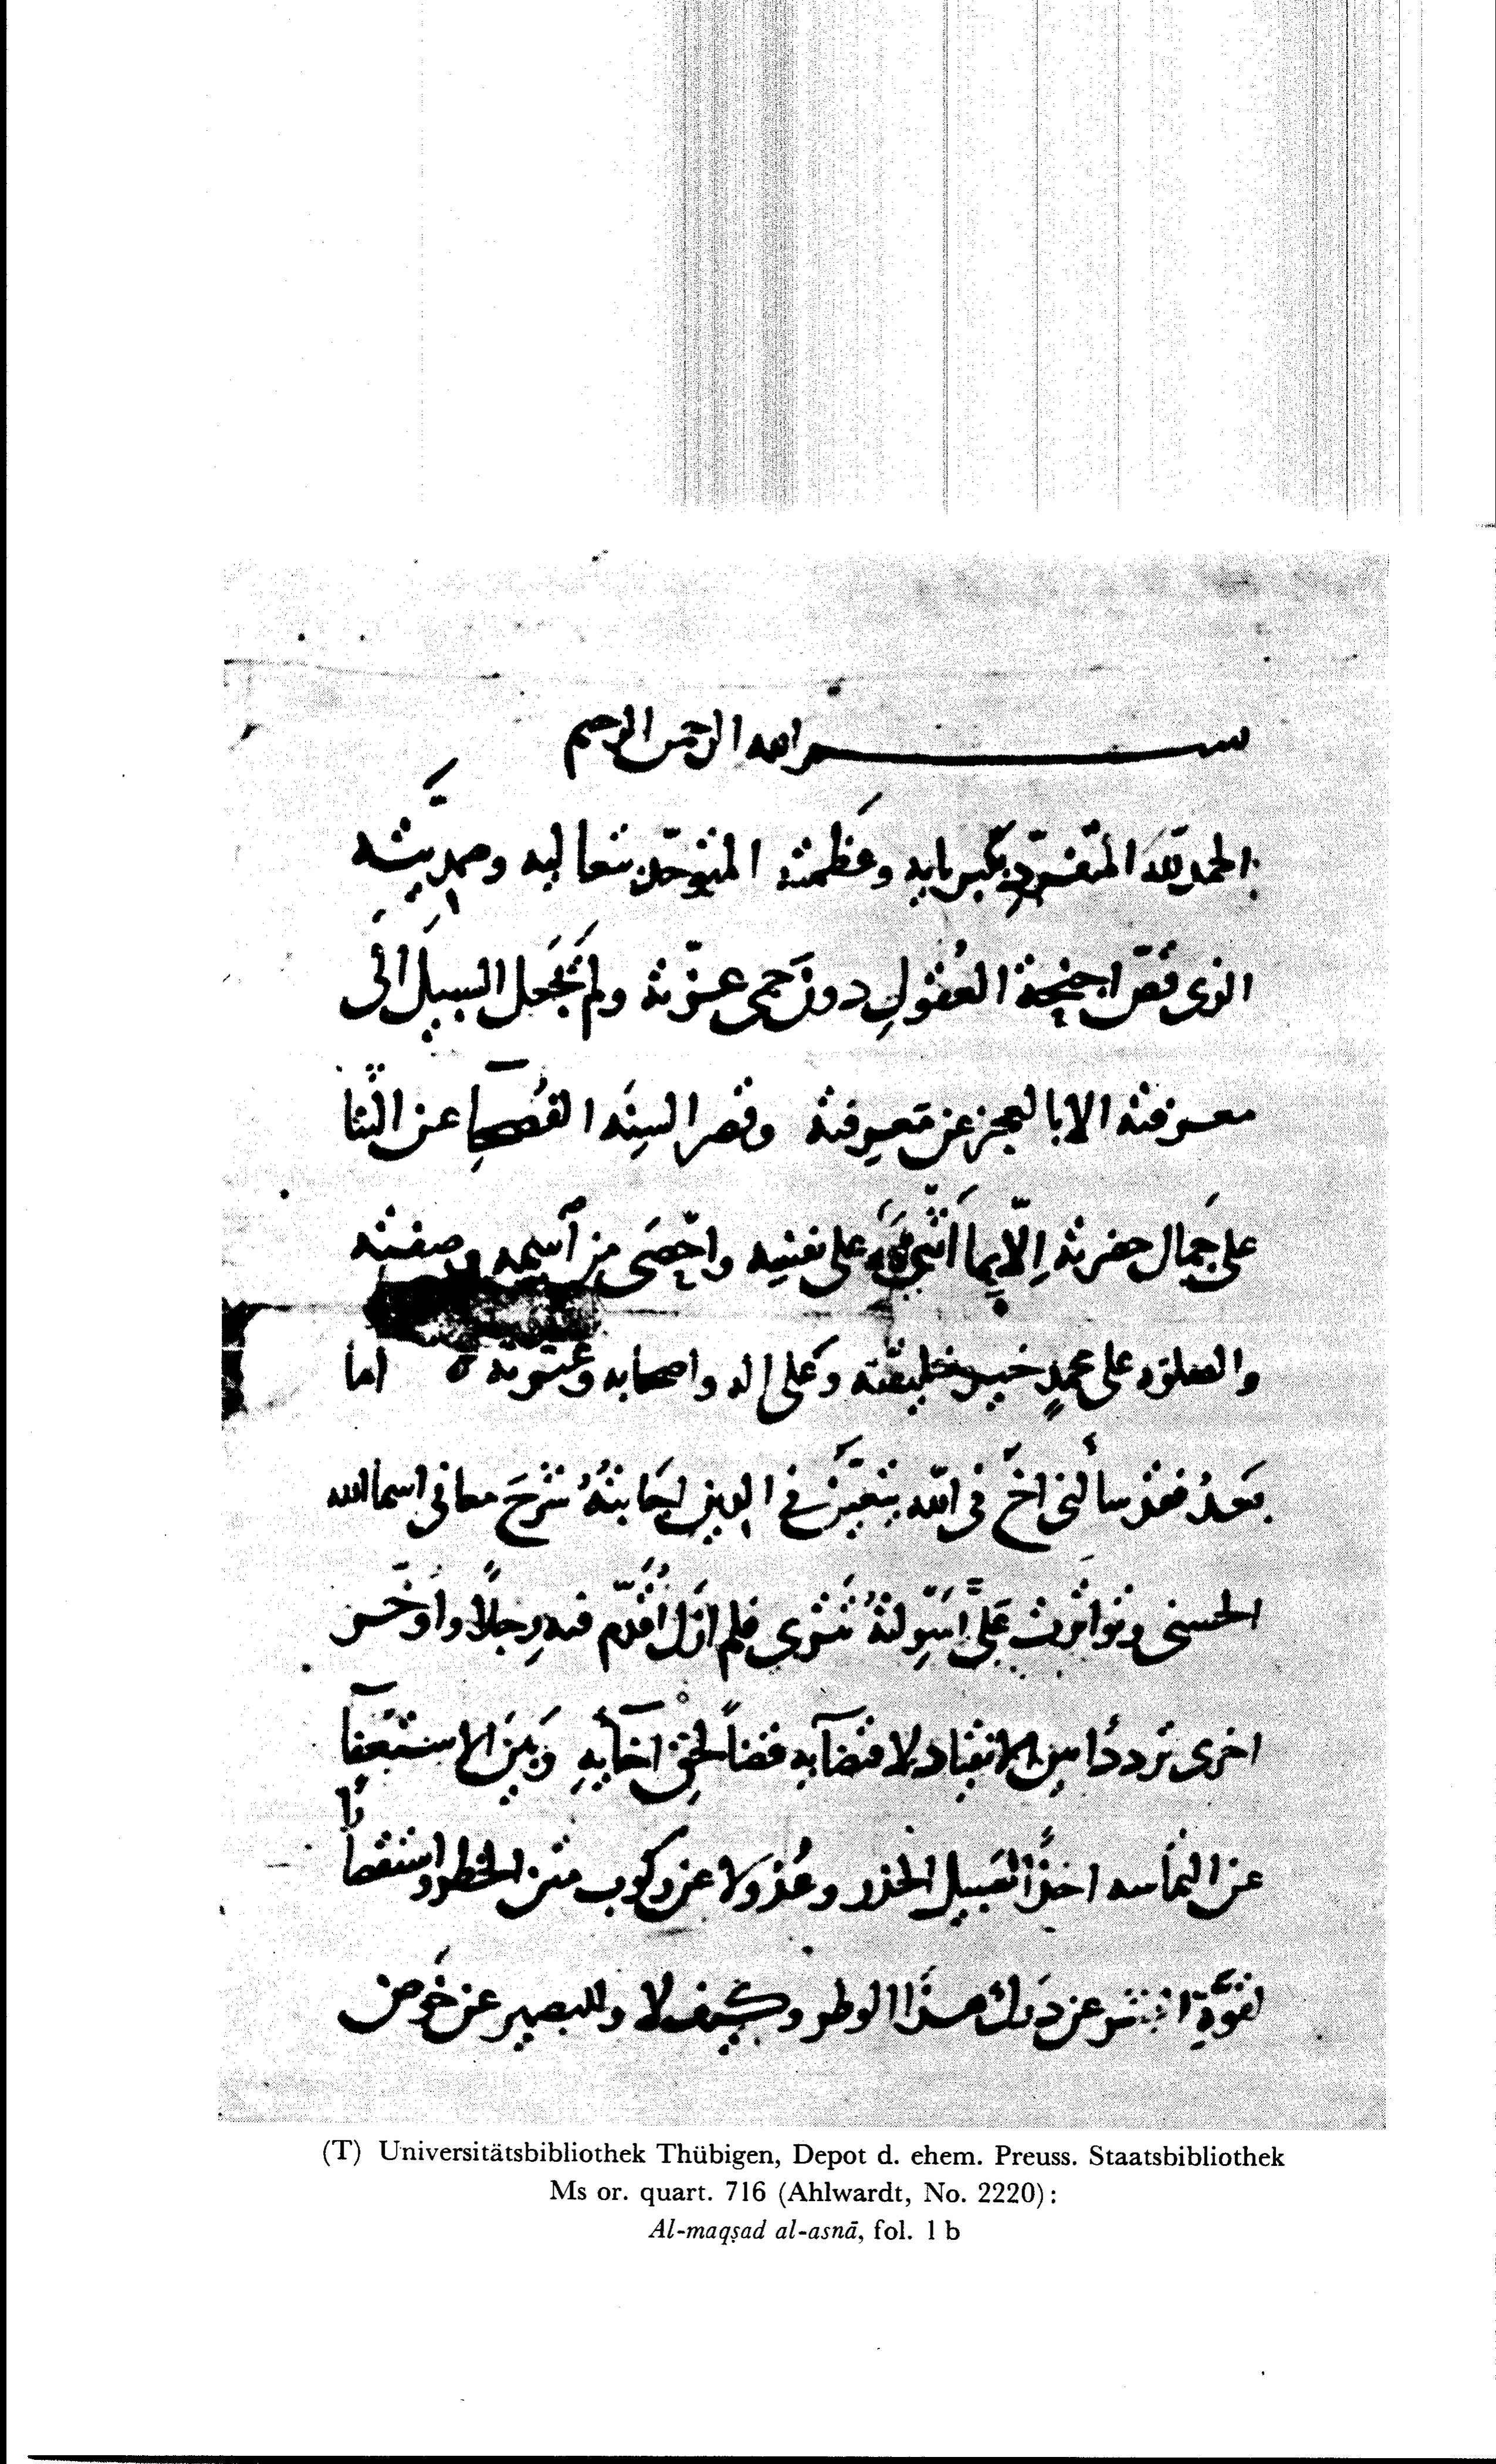 بسم الله الرحمن الرحيم
الحمد لله المتفرد بكبريايه وعظمته المتوحد بتعاليه وصمديته
الذي قص اجنحة العقول دون حمى عزته ولم يجعل السبيل الى
معرفته الا بالعجز عن معرفته وقصر السنه الفصحا عن الثنا
على جمال حضرته الا بما اثنى به على نفسه واحصى من اسمه وصفته
والصلوه على محمد خير خليقته وعلى اله واصحابه وعترته ه اما
بعد فقد سالنى اخ فى الله يتعين فى الدين اجابته شرح معانى اسما الله
الحسنى وتواترت على اسولته تترى فلم ازل اقدم فيه رجلا واوخر
اخرى ترددا بين الانقياد لاقتضايه قضا لحق اخايه وبين الاستعفا
عن التماسه اخذا لسبيل الحذر وعدولا عن ركوب متن الخطر واستقصارا
لقوة البشر عن درك هذا الوطر وكيف لا وللبصير عن خوض
(T) Universitätsbibliothek Thübigen, Depot d. ehem. Preuss. Staatsbibliothek
Ms or. quart. 716 (Ahlwardt, No. 2220):
Al-maqṣad al-asnā, fol. 1 b